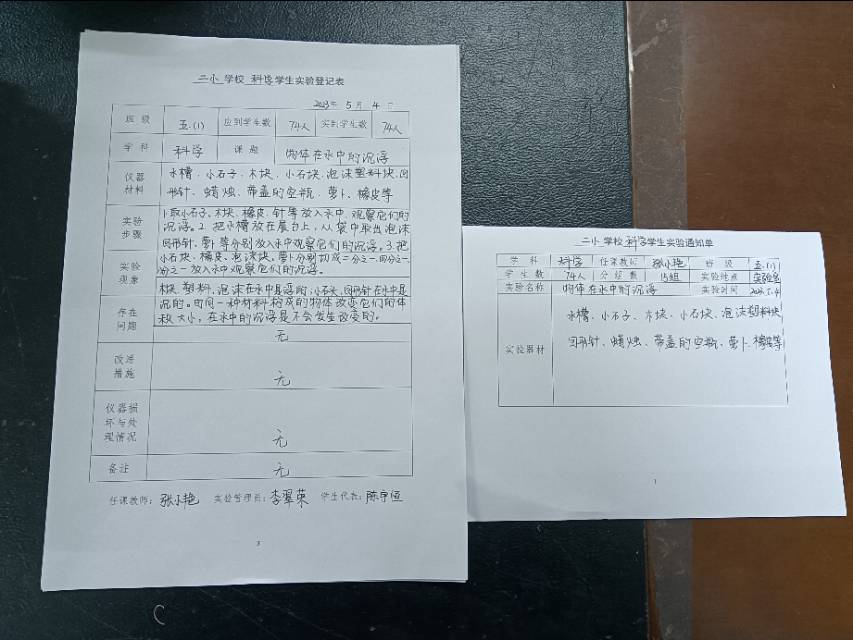 二小 学校 科学 学生实验登记表
2023年 5 月 4 日
班 级 五.(1) 应到学生数 74人 实到学生数 74人
学 科 科学 课 题 物体在水中的沉浮
仪器材料 水槽、小石子、木块、小石块、泡沫塑料块、回
形针、蜡烛、带盖的空瓶、萝卜、橡皮等
实验步骤 1.取小石子、木块、橡皮、针等放入水中,观察它们的
沉浮。2.把水槽放在展台上,从袋中取出泡沫
回形针、萝卜等分别放入水中观察它们的沉浮。3.把
小石块、橡皮、泡沫块。萝卜分别切成二分之一、四分之一、
分之一放入水中观察它们的沉浮。
实验现象 木块、塑料、泡沫在水中是浮的,小石头、回形针在水中是
沉的。由同一种材料构成的物体改变它们的体
积大小,在水中的沉浮是不会发生改变的。
存在问题 无
改进措施 无
仪器损坏与处理情况 无
备注 无
任课教师: 张小艳 实验管理员: 李翠荣 学生代表: 陈宇恒
3
二小 学校 科学 学生实验通知单
学 科 科学 任课教师 张小艳 班 级 五.(1)
学 生 数 74人 分 组 数 15组 实验地点 实验室
实验名称 物体在水中的沉浮 实验时间 2023.5.4
实验器材 水槽、小石子、木块、小石块、泡沫塑料块
回形针、蜡烛、带盖的空瓶、萝卜、橡皮等
1